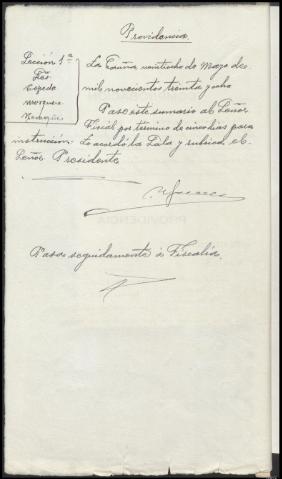 Providencia
Sección 1ª
Sres
Cepeda
Marquez
La Coruña veintiocho de Mayo de
mil novecientos treinta y ocho
Pase este sumario al Señor
Fiscal por termino de cinco dias para
instrucción. Lo acordó la Sala y rubrica el
Señor Presidente
Pasa seguidamente á Fiscalía.
PROVIDENCIA